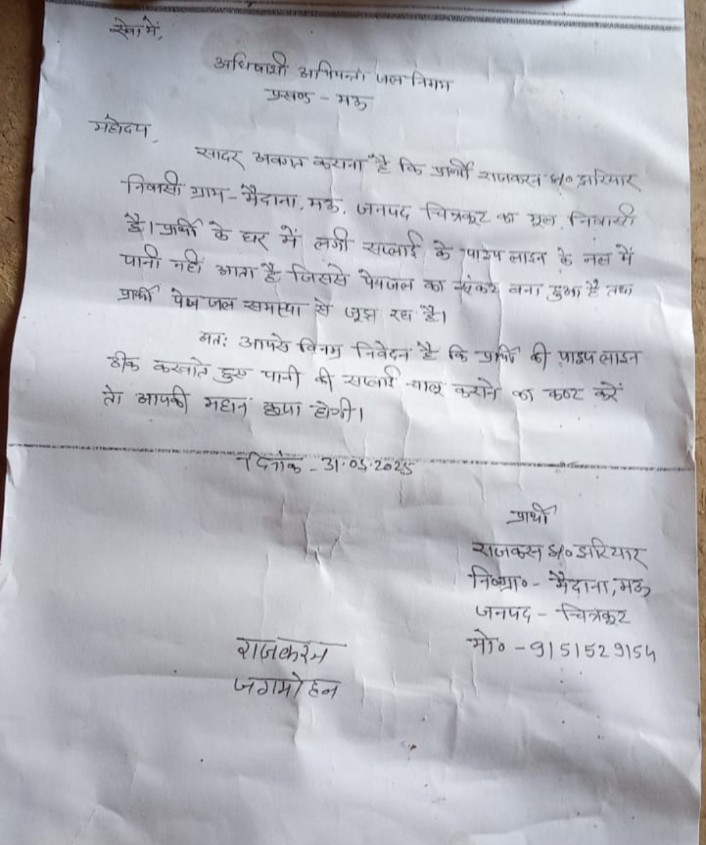 सेवा में,
अधिशाषी अभियन्ता जल निगम
प्रखण्ड - मऊ
महोदय,
सादर अवगत कराना है कि प्रार्थी राजकरन S/० झरियार
निवासी ग्राम - मैदाना, मऊ, जनपद चित्रकूट का मूल निवासी
है। प्रार्थी के घर में लगी सप्लाई के पाइप लाइन के नल में
पानी नहीं आता है जिससे पेयजल का संकट बना हुआ है तथा
प्रार्थी पेय जल समस्या से जूझ रहा है।
अतः आपसे विनम्र निवेदन है कि प्रार्थी की पाइप लाइन
ठीक करवाते हुए पानी की सप्लाई चालू कराने का कष्ट करें
तो आपकी महान कृपा होगी।
दिनांक - 31.05.2025
प्रार्थी
राजकरन S/० झरियार
नि०ग्रा० - मैदाना, मऊ
जनपद - चित्रकूट
मो० - 9151529154
राजकरन
जगमोहन